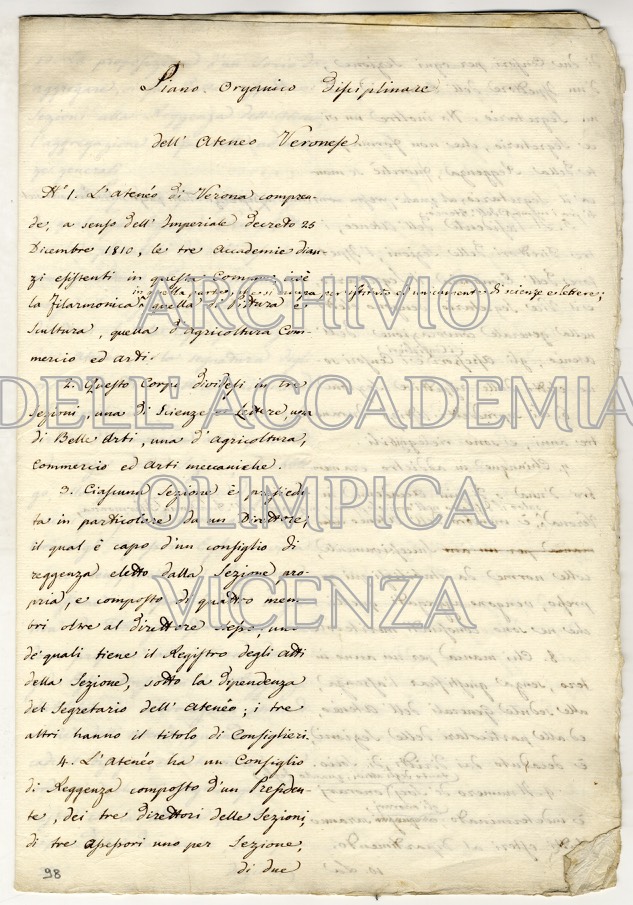 Piano Organico Disciplinare
dell' Ateneo Veronese
N.º 1. L'Ateneo di Verona compren-
de, a senso dell' Imperiale decreto 25
Dicembre 1810, le tre accademie dian-
zi esistenti in questa Comune; cioè
in quella parte, che per istituto di scienze e lettere;
la Filarmonica quella di Pittura e
scultura, quella d'agricoltura Com-
mercio ed arti.
2. Questo Corpo dividesi in tre
sezioni, una di Scienze e Lettere, una
di Belle Arti, una d'agricoltura,
Commercio ed arti meccaniche.
3. Ciascuna Sezione è presiedu-
ta in particolare da un Direttore,
il qual è capo d'un consiglio di
reggenza eletto dalla Sezione pro-
pria, e composto di quattro mem-
bri oltre al direttore stesso, un
de' quali tiene il Registro degli atti
della Sezione, sotto la dipendenza
del Segretario dell' Ateneo; i tre
altri hanno il titolo di Consiglieri.
4. L'Ateneo ha un Consiglio
di Reggenza composto d'un Presiden-
te, dei tre direttori delle Sezioni,
di tre assessori uno per Sezione,
di due
98
ARCHIVIO
DELL'ACCADEMIA
OLIMPICA
VICENZA